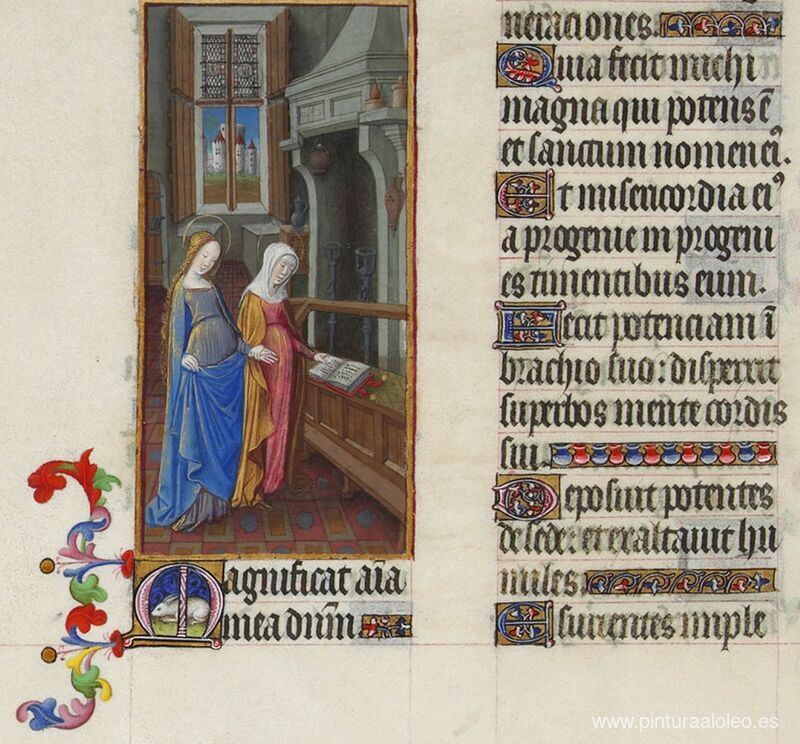 agnificat aīa
mea dnm̄
neraciones.
Quia fecit michi
magna qui potens ē
et sanctum nomen ei⁹.
Et misericordia ei⁹
a progenie in progeni
es timentibus eum.
Fecit potenciam ī
brachio suo: disperxit
superbos mente cordis
sui.
Deposuit potentes
de sede: et exaltavit hu
miles.
Esurientes imple
www.pinturaaloleo.es